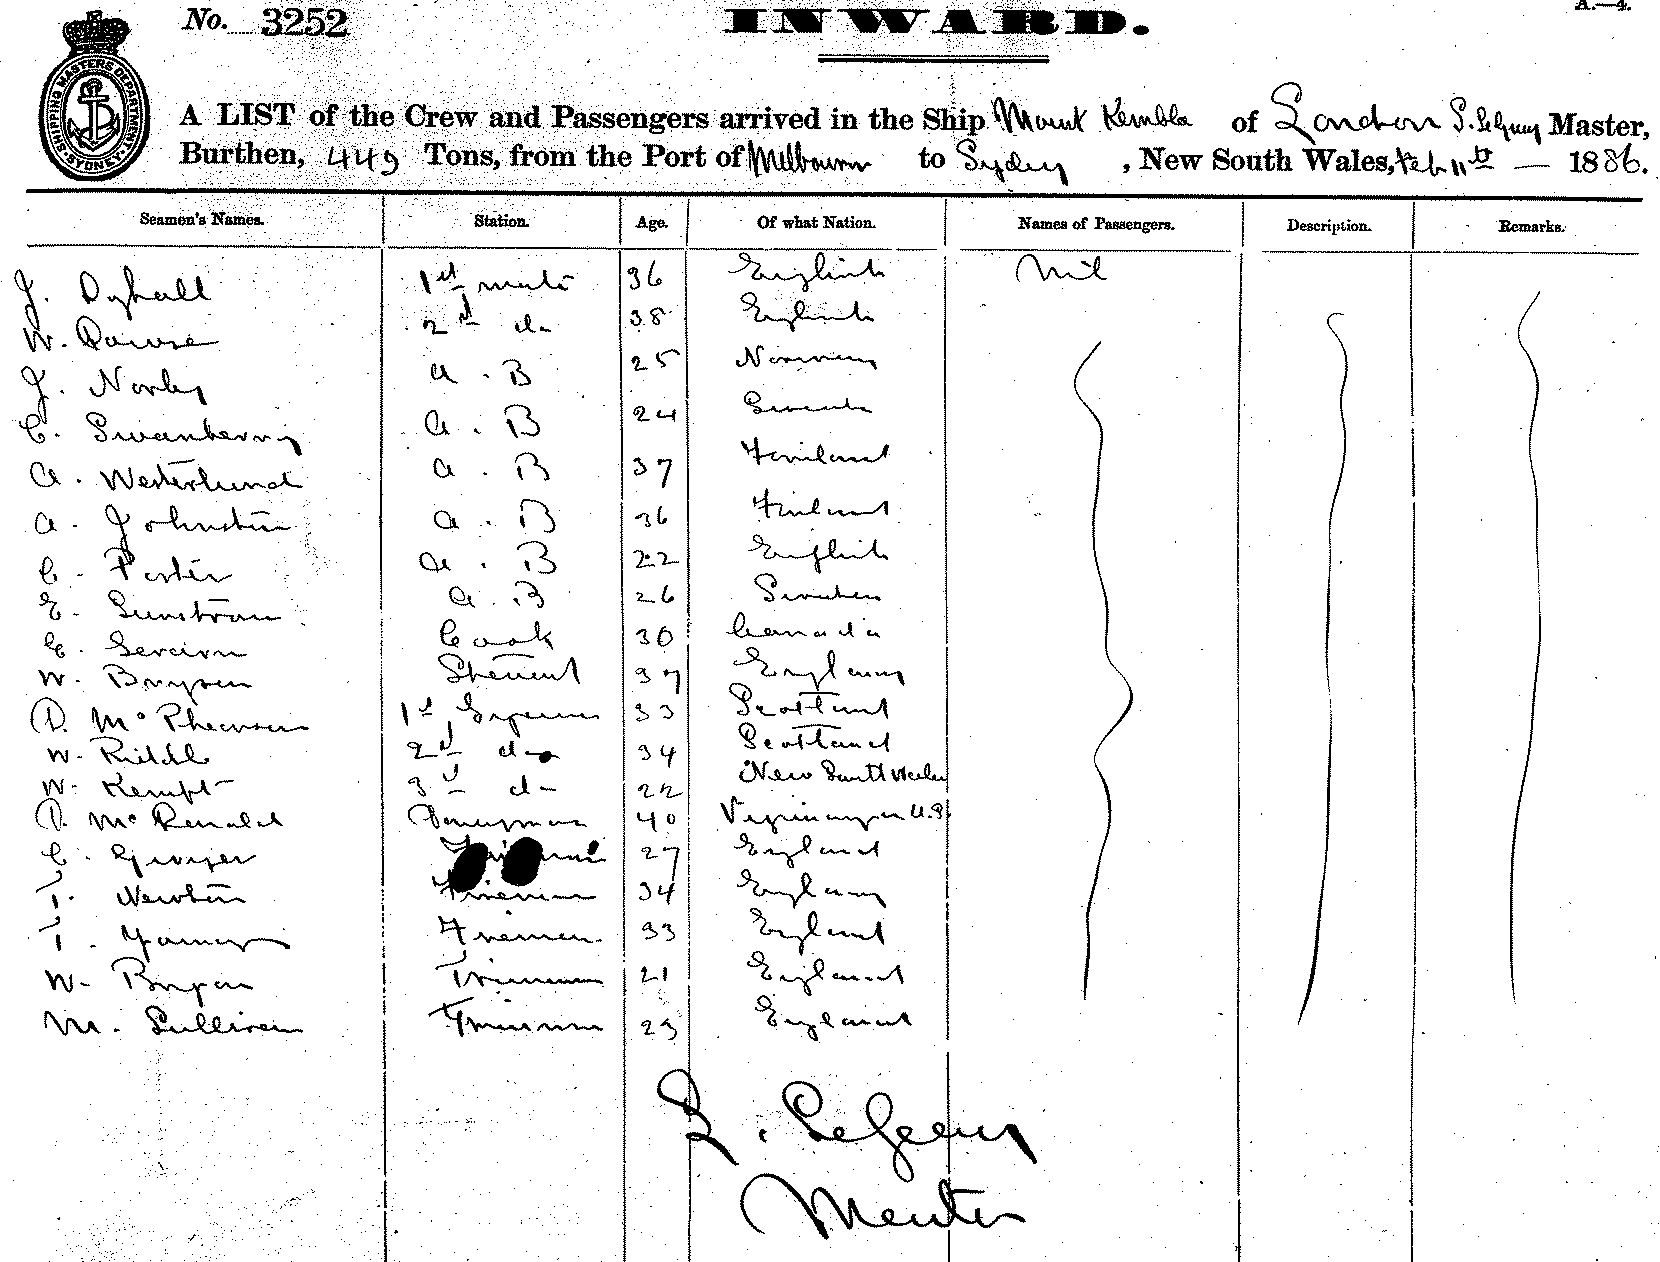 No. 3252
INWARD.
A.—4.
SHIPPING MASTERS DEPARTMENT SYDNEY
A LIST of the Crew and Passengers arrived in the Ship Mount Kembla of London Master,
Burthen, 449 Tons, from the Port of Melbourne to Sydney, New South Wales, Feb 11th — 1886.
Seamen's Names. Station. Age. Of what Nation. Names of Passengers. Description. Remarks.
J. 1st mate 36 English Nil
W. 2nd do 38 English
J. Norby A.B 25 Norway
C. Swanberry A.B 24 Sweden
A. Westerlund A.B 37 Finland
A. Johnston A.B 36 Finland
C. Porter A.B 22 English
E. Sunstrom A.B 26 Sweden
E. Cook 30 Canada
W. Bryson Steward 37 England
D. McPhearson 1st 33 Scotland
W. Riddle 2nd do 34 Scotland
W. Kempt 3rd do 22 New South Wales
D. McDonald Donkeyman 40 U.S.
C. 27 England
T. Newton Fireman 34 England
T. Fireman 33 England
W. Trimmer 21 England
M. Sullivan Trimmer 23 England
Master